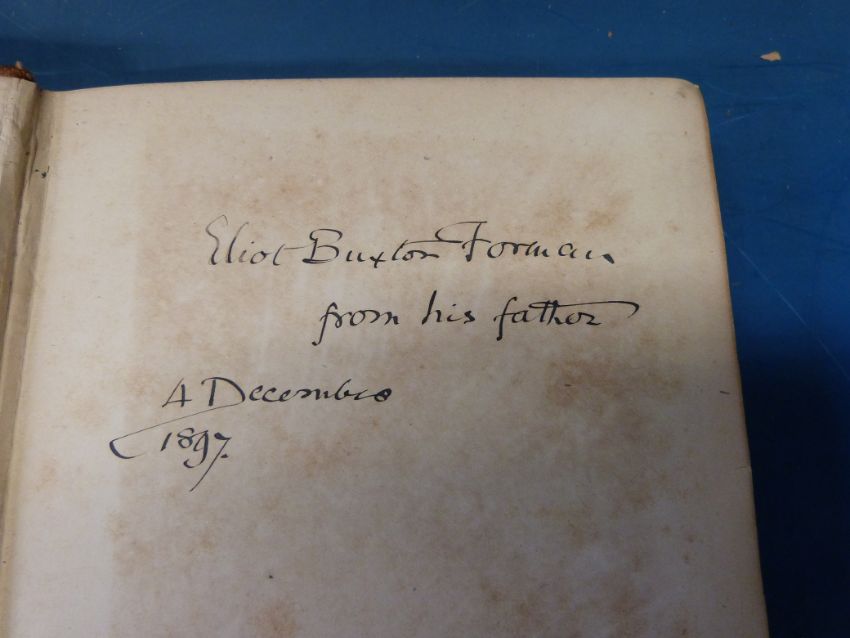 Eliot Buxton Forman
from his father
4 December
1897.